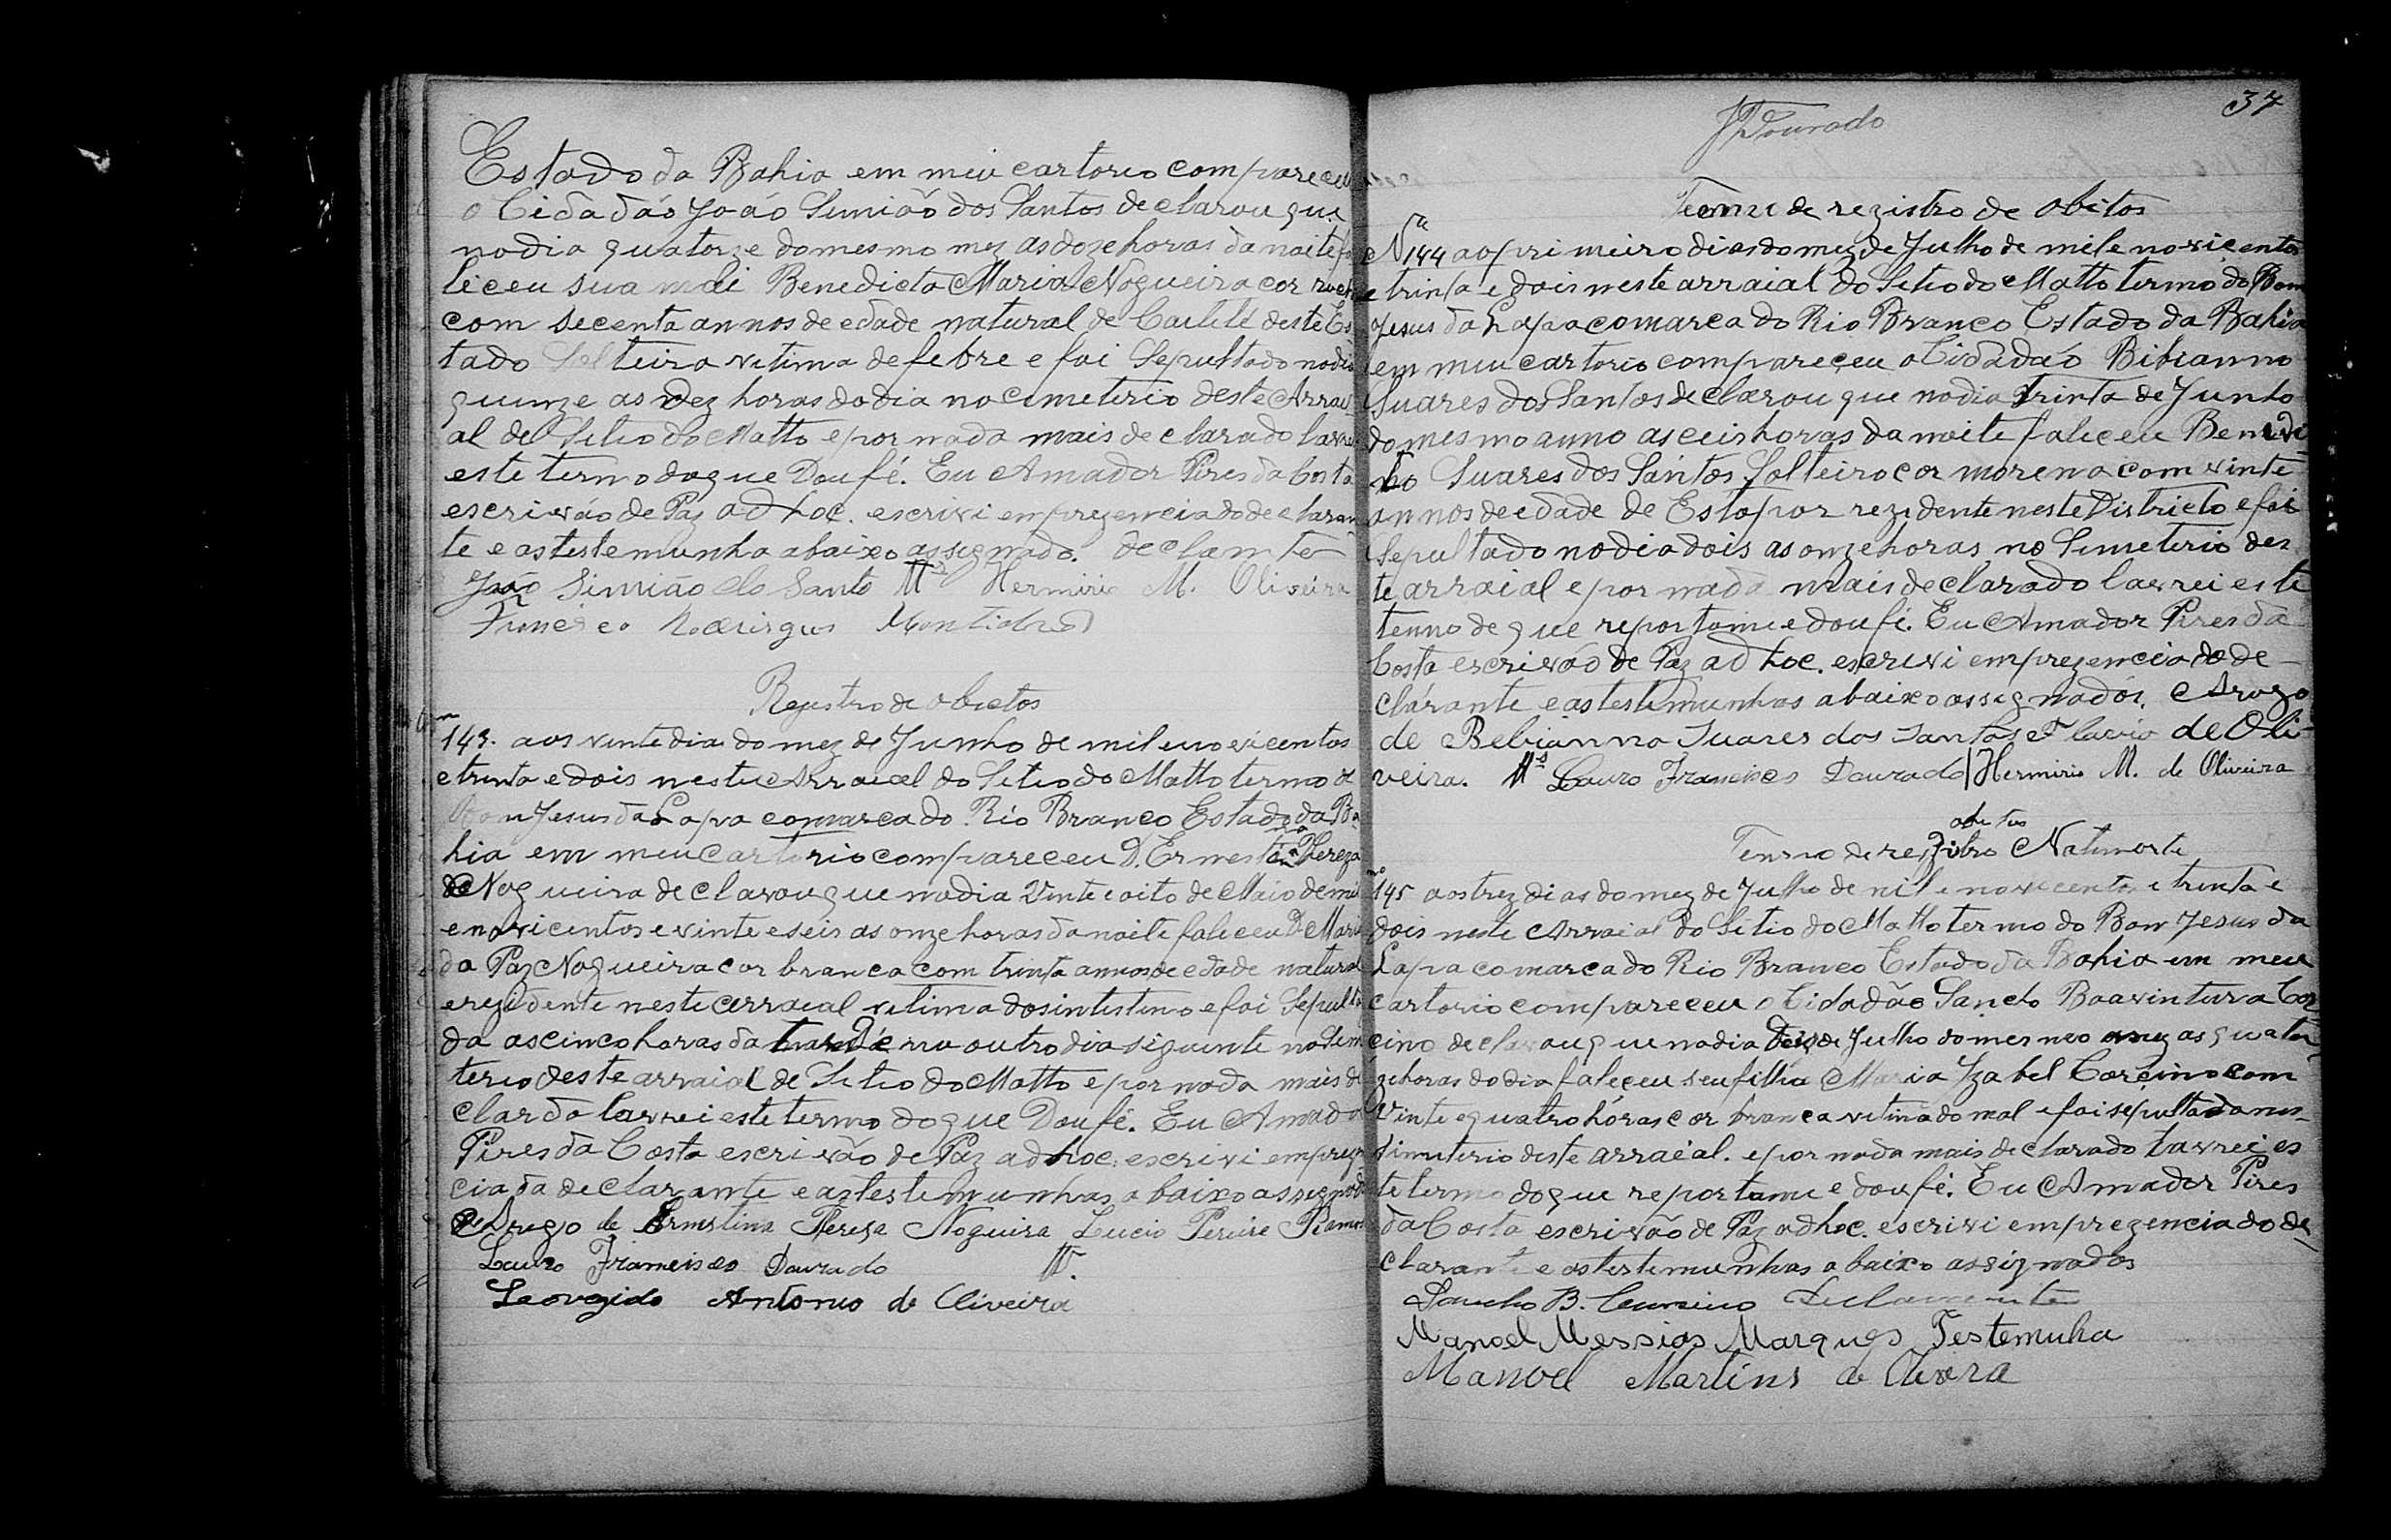 Estado da Bahia em meu cartorio compareceu
o Cidadão João Simião dos Santos declarou que
no dia quatorze do mesmo mez as doze horas da noite fa
liceu sua mãi Benedicta Maria Nogueira cor
com secenta annos de edade natural de Caitité deste Es
tado Solteira vitima de febre e foi Sepultado no dia
quinze as dez horas do dia no cimeterio deste Arrai
al del Sitio do Matto e por nada mais declarado lavrei
este termo do que Dou fé. Eu Amador Pires da Costa
escrivão de Paz ad hoc. escrivi em prezencia do declaran
te e as testemunha abaixo assignado. declamte
João Simião do Santo Hermirio M. Oliveira
Rodrigues
Registro de obietos
143. aos vinte dia do mez de Junho de mil e novicentos
e trinta e dois neste Arraial do Sitio do Matto termo d
Bom Jesus da Lapa comarca do Rio Branco Estado da Ba
hia em meu cartorio compareceu D. Ernestina Thereza
de Nogueira declarou que no dia Vinte e oito de Maio de mil
e novicentos e vinte e seis as onze horas da noite faliceu D. Maria
da Paz Nogueira cor branca com trinta annos de edade natural
e rezidente neste arraial vitima dos intistino e foi Sepulta
da as cinco horas da tarde no outro dia siguinte no Sime
terio deste arraial de Sitio do Matto e por nada mais de
clardo lavrei este termo do que Dou fé. Eu Amador
Pires da Costa escrivão de Paz ad hoc. escrivi em prezen
cia da declarante e as testemunhas abaixo assignado
Arogo de Ernestina Thereza Noguira Lucio Pereire Ramos
Lauro Francisco Dourado
Leovegido Antonio de Oliveira
37
J Dourado
Termo de registro de obitos
Nº 144 ao primeiro dias do mez de Julho de mil e novicentos
e trinta e dois neste arraial do Sitio do Matto termo do Bom
Jesus da Lapa comarca do Rio Branco Estado da Bahia
em meu cartorio compareceu o Cidadão Bibianno
Suares dos Santos declarou que no dia trinta de Junho
do mesmo anno as ceis horas da noite faliceu Benidi
to Suares dos Santos Solteiro cor morena com vinte
annos de edade de Estapor rezidente neste Districto e foi
Sepultado no dia dois as onze horas no Simeterio des
te arraial e por nada mais declarado lavrei este
termo de que reportome e dou fé. Eu Amador Pires da
Costa escrivão de Paz ad hoc. escrivi em prezencia do de
clarante e as testemunhas abaixo assignados. Arogo
de Bebianno Suares dos Santos Flavio de Oli
veira. Lauro Francisco Dourado / Hermirio M. de Oliveira
obitos
Termo de registro Natimorte
145 aos trez dias do mez de Julho de mil e novicentos e trinta e
dois neste Arraial do Sitio do Matto termo do Bom Jesus da
Lapa comarca do Rio Branco Estado da Bahia em meu
cartorio compareceu o Cidadão Sancho Boaventura Cor
cino declarou que no dia Dois de Julho do mesmo as quator
ze horas do dia faleceu seu filha Maria Izabel Corcino com
Vinte e quatro hóras cor branca vitima do mal e foi sepultada no
Simeterio deste arraial. e por nada mais declarado lavrei es
te termo do que reportame e dou fé. Eu Amador Pires
da Costa escrivão de Paz ad hoc. escrivi em prezencia do de
clarante e as testemunhas abaixo assignados
Sancho B. Corsino Declarante
Manoel Messias Marques Testemuha
Manoel Martins de Olivera